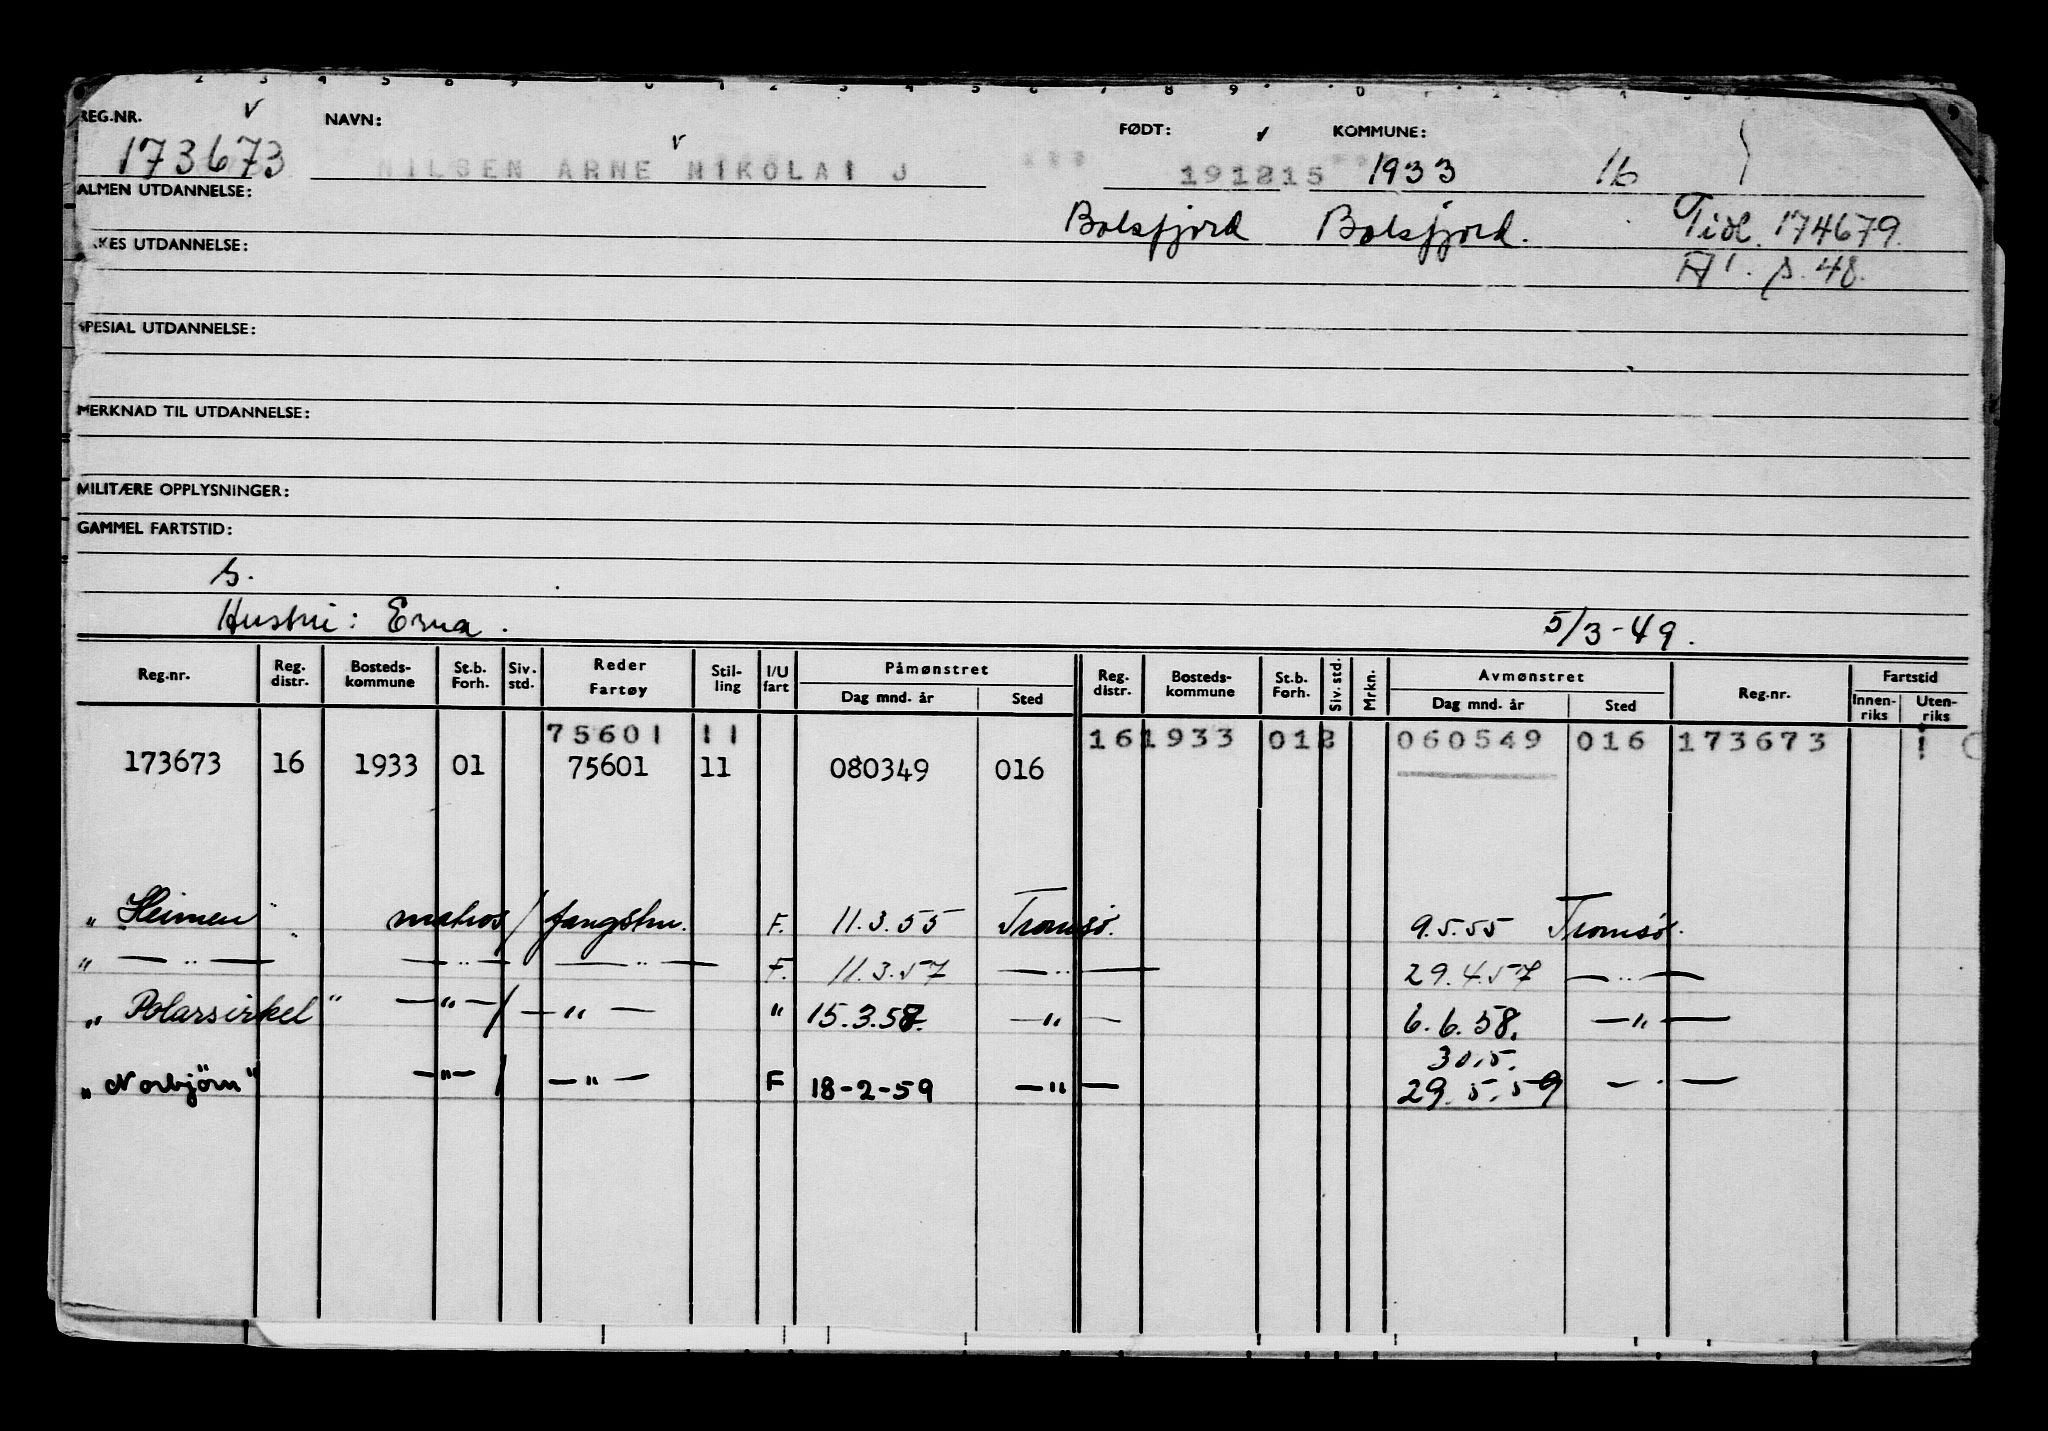 REG.NR. NAVN: FØDT: KOMMUNE:
173673 NILSEN ARNE NIKOLAI J *** 191215 1933 16
ALMEN UTDANNELSE:
Balsfjord Balsfjord. Tidl. 174679.
KES UTDANNELSE:
s. 48.
SPESIAL UTDANNELSE:
MERKNAD TIL UTDANNELSE:
MILITÆRE OPPLYSNINGER:
GAMMEL FARTSTID:
s.
Hustru: Erna. 5/3-49.
Reg.nr. Reg. distr. Bosteds-kommune St.b. Forh. Siv. std. Reder Fartøy Stil-ling I/U fart Påmønstret Dag mnd. år Sted Reg. distr. Bosteds-kommune St.b. Forh. Siv. std. Mrkn. Avmønstret Dag mnd. år Sted Reg.nr. Fartstid Innen-riks Uten-riks
75601 11 161933 012 060549 016 173673
173673 16 1933 01 75601 11 080349 016
" Heimen matros / fangstm. F. 11.3.55 Tromsø. 9.5.55 Tromsø.
" — " — — " — — " — F. 11.3.57 — " — 29.4.57 — " —
" Polarsirkel " — " — / — " — " 15.3.58. — " — 6.6.58. — " —
30.5.
" Norbjørn " — " — / — " — F 18-2-59 — " — 29.5.59 — " —